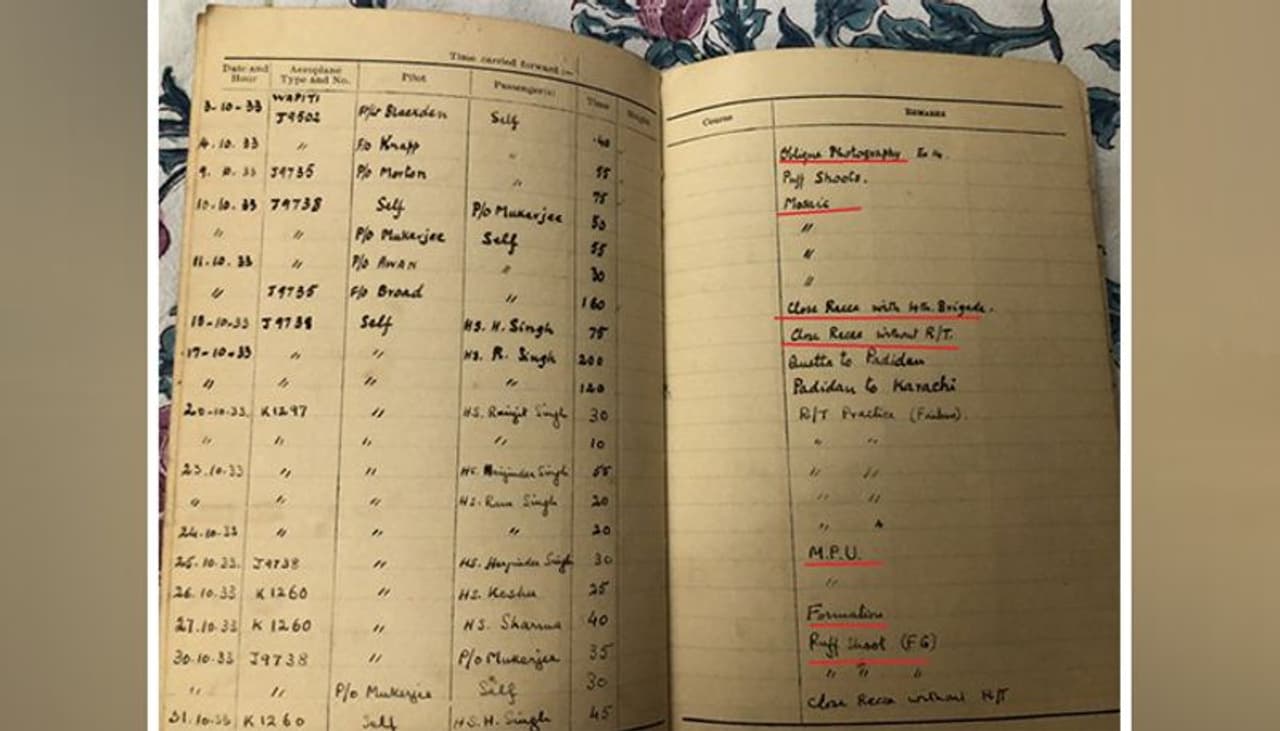 Time carried forward :—
Date and Hour Aeroplane Type and No. Pilot Passenger(s) Time Course REMARKS
3-10-33 WAPITI J9502 Self
4.10.33 " F/O Knapp " 40 Oblique Photography
9.10.33 J9735 P/O Morton " 55 Puff Shoots.
10.10.33 J9738 Self P/O Mukerjee 75 Mosaic
" " P/O Mukerjee Self 50 "
11.10.33 " P/O AWAN " 55 "
" J9735 F/O Broad " 30 "
160 Close Recce with 4th. Brigade.
J9738 Self HS. H. Singh 75 Close Recce without R/T.
17-10-33 " " HS. R. Singh 200 Quetta to Padidan
" " " " 120 Padidan to Karachi
20-10-33 K1297 " HS. Ranjit Singh 30 R/T Practice
" " " " 10 " "
23.10.33 " " HS. Singh 55 " "
" " " HS. Ram Singh 20 " "
24.10.33 " " " 20 "
25.10.33. J9738 " HS. Harjinder Singh 30 M.P.U.
26.10.33 K1260 " HS. 25 "
27.10.33 K1260 " HS. Sharma 40 Formation
30.10.33 J9738 " P/O Mukerjee 35 Puff Shoot (FG)
" " P/O Mukerjee Self 30 " " "
31.10.33 K1260 Self HS. H. Singh 45 Close Recce without R/T